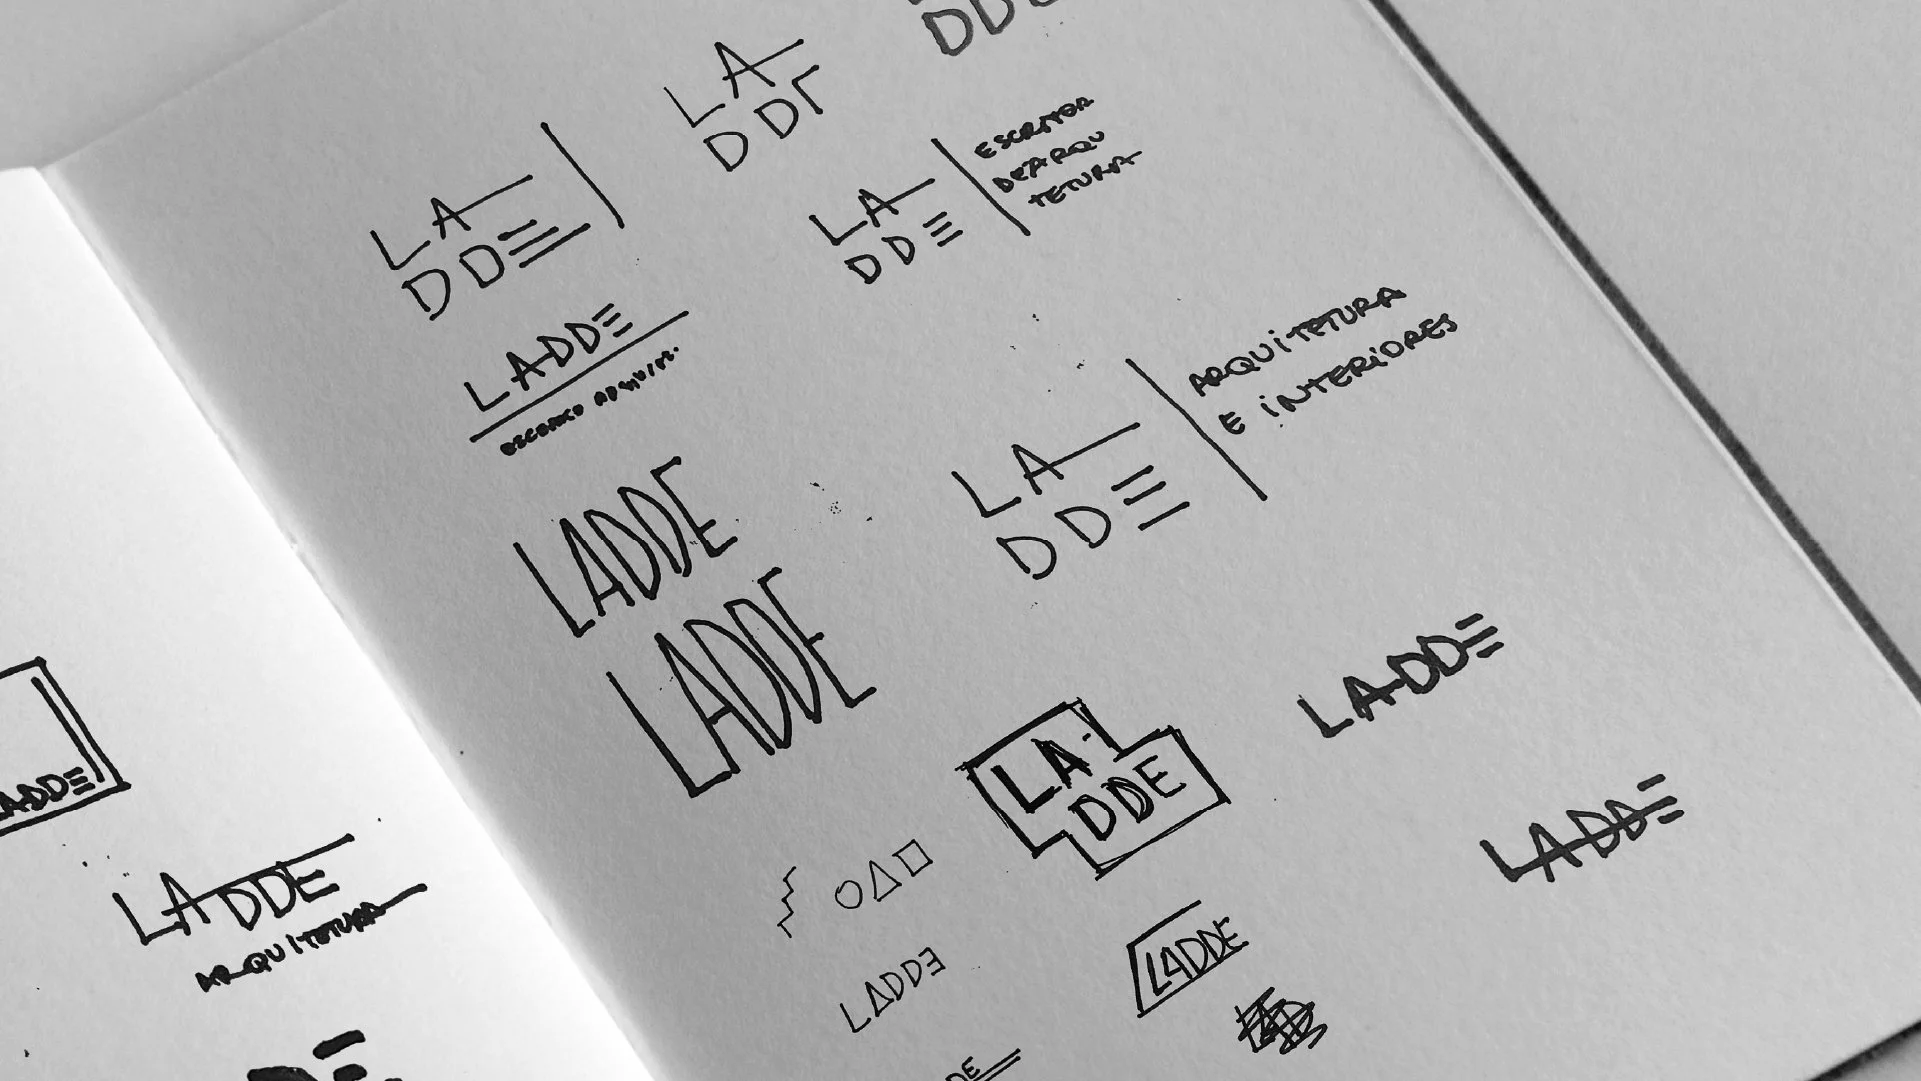 LA
DDE
LA
DD
DD
LA
DDE
ESCRITOR
DE ARQU
TETURA
LADDE
LADDE
LADDE
LA
DDE
ARQUiTETURA
E iNTERiORES
LADDE
LADDE
LA-
DDE
LADDE
LADDE
DE
LADDE
LADDE
ARQUiTETURA